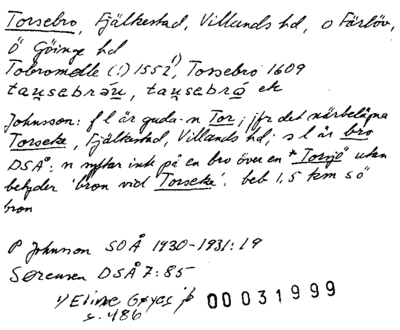 Torsebro, Fjälkestad, Villands hd, o Färlöv,
Ö Göinge hd
Tobromølle (:) 1552¹⁾, Torssebro 1609
tausabrou, tausabro ek
Johnsson: f l är guda-n Tor; jfr det närbelägna
Torseke, Fjälkestad, Villands hd; s l är bro
DSÅ: n syftar ink på en bro över en *Torsjö utan
betyder 'bron vid Torseke'. beb 1,5 km sö
bron
P Johnsson SOÅ 1930-1931:19
Sørensen DSÅ 7:85
1) Eline Gøyes jb 00031999
s. 486